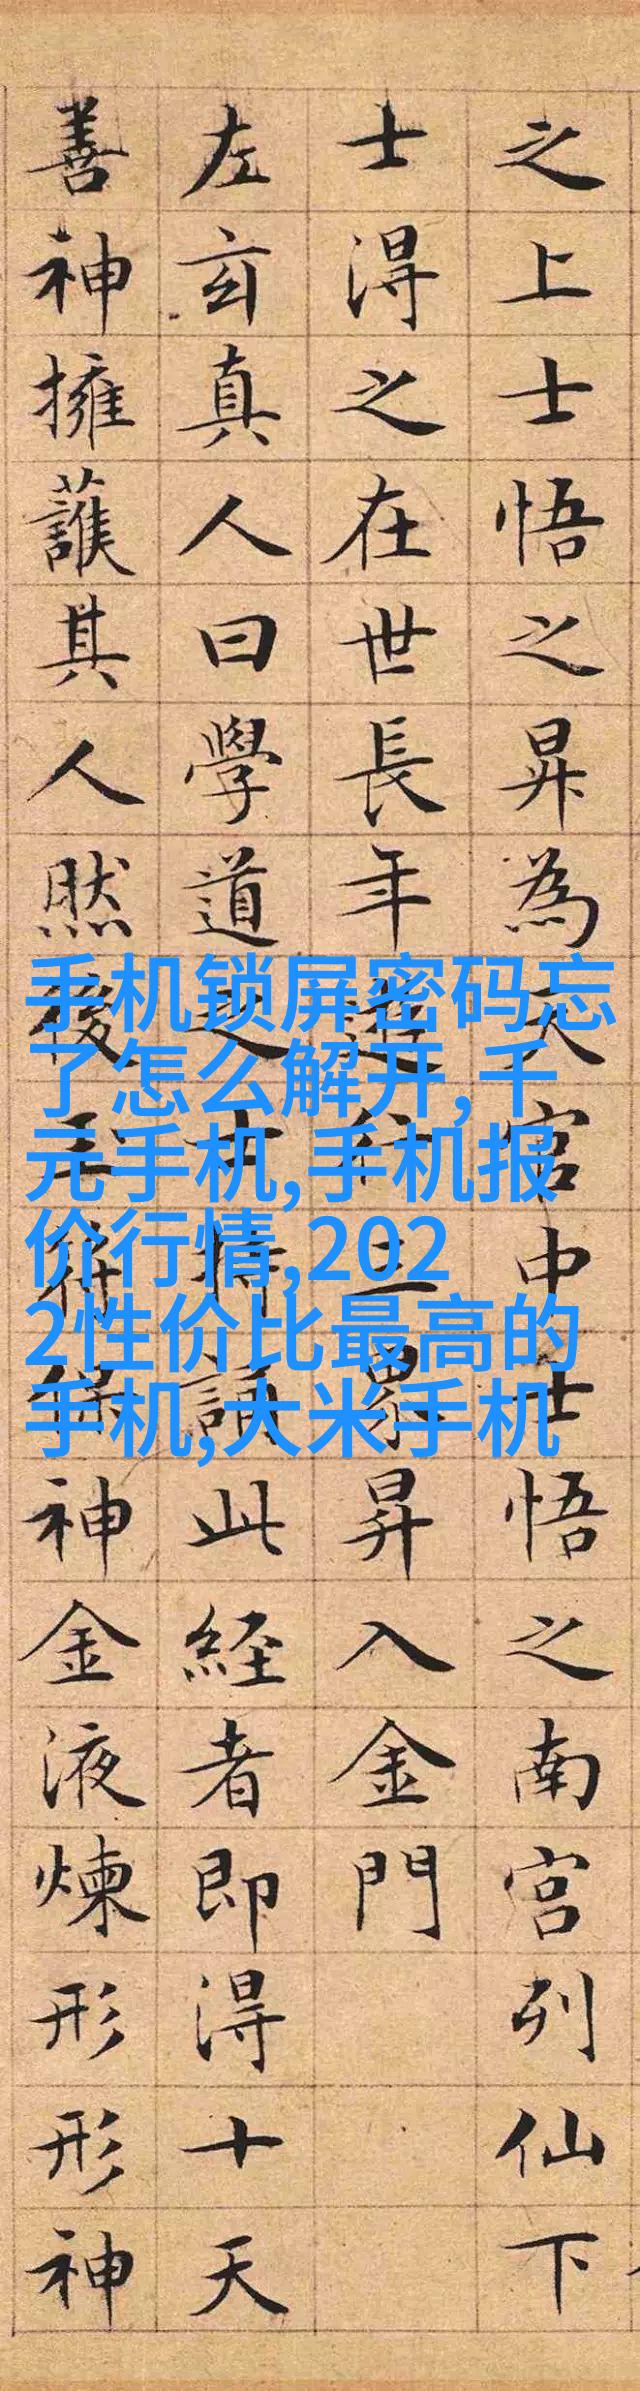 之上士悟之昇為天官中士悟之南宮列仙下
士得之在世長年遊行三界昇入金門
左玄真人曰學道之士持誦此經者即得十天
善神擁護其人然後玉符保神金液煉形形神
手机锁屏密码忘
了怎么解开,千
元手机,手机报
价行情,202
2性价比最高的
手机,大米手机